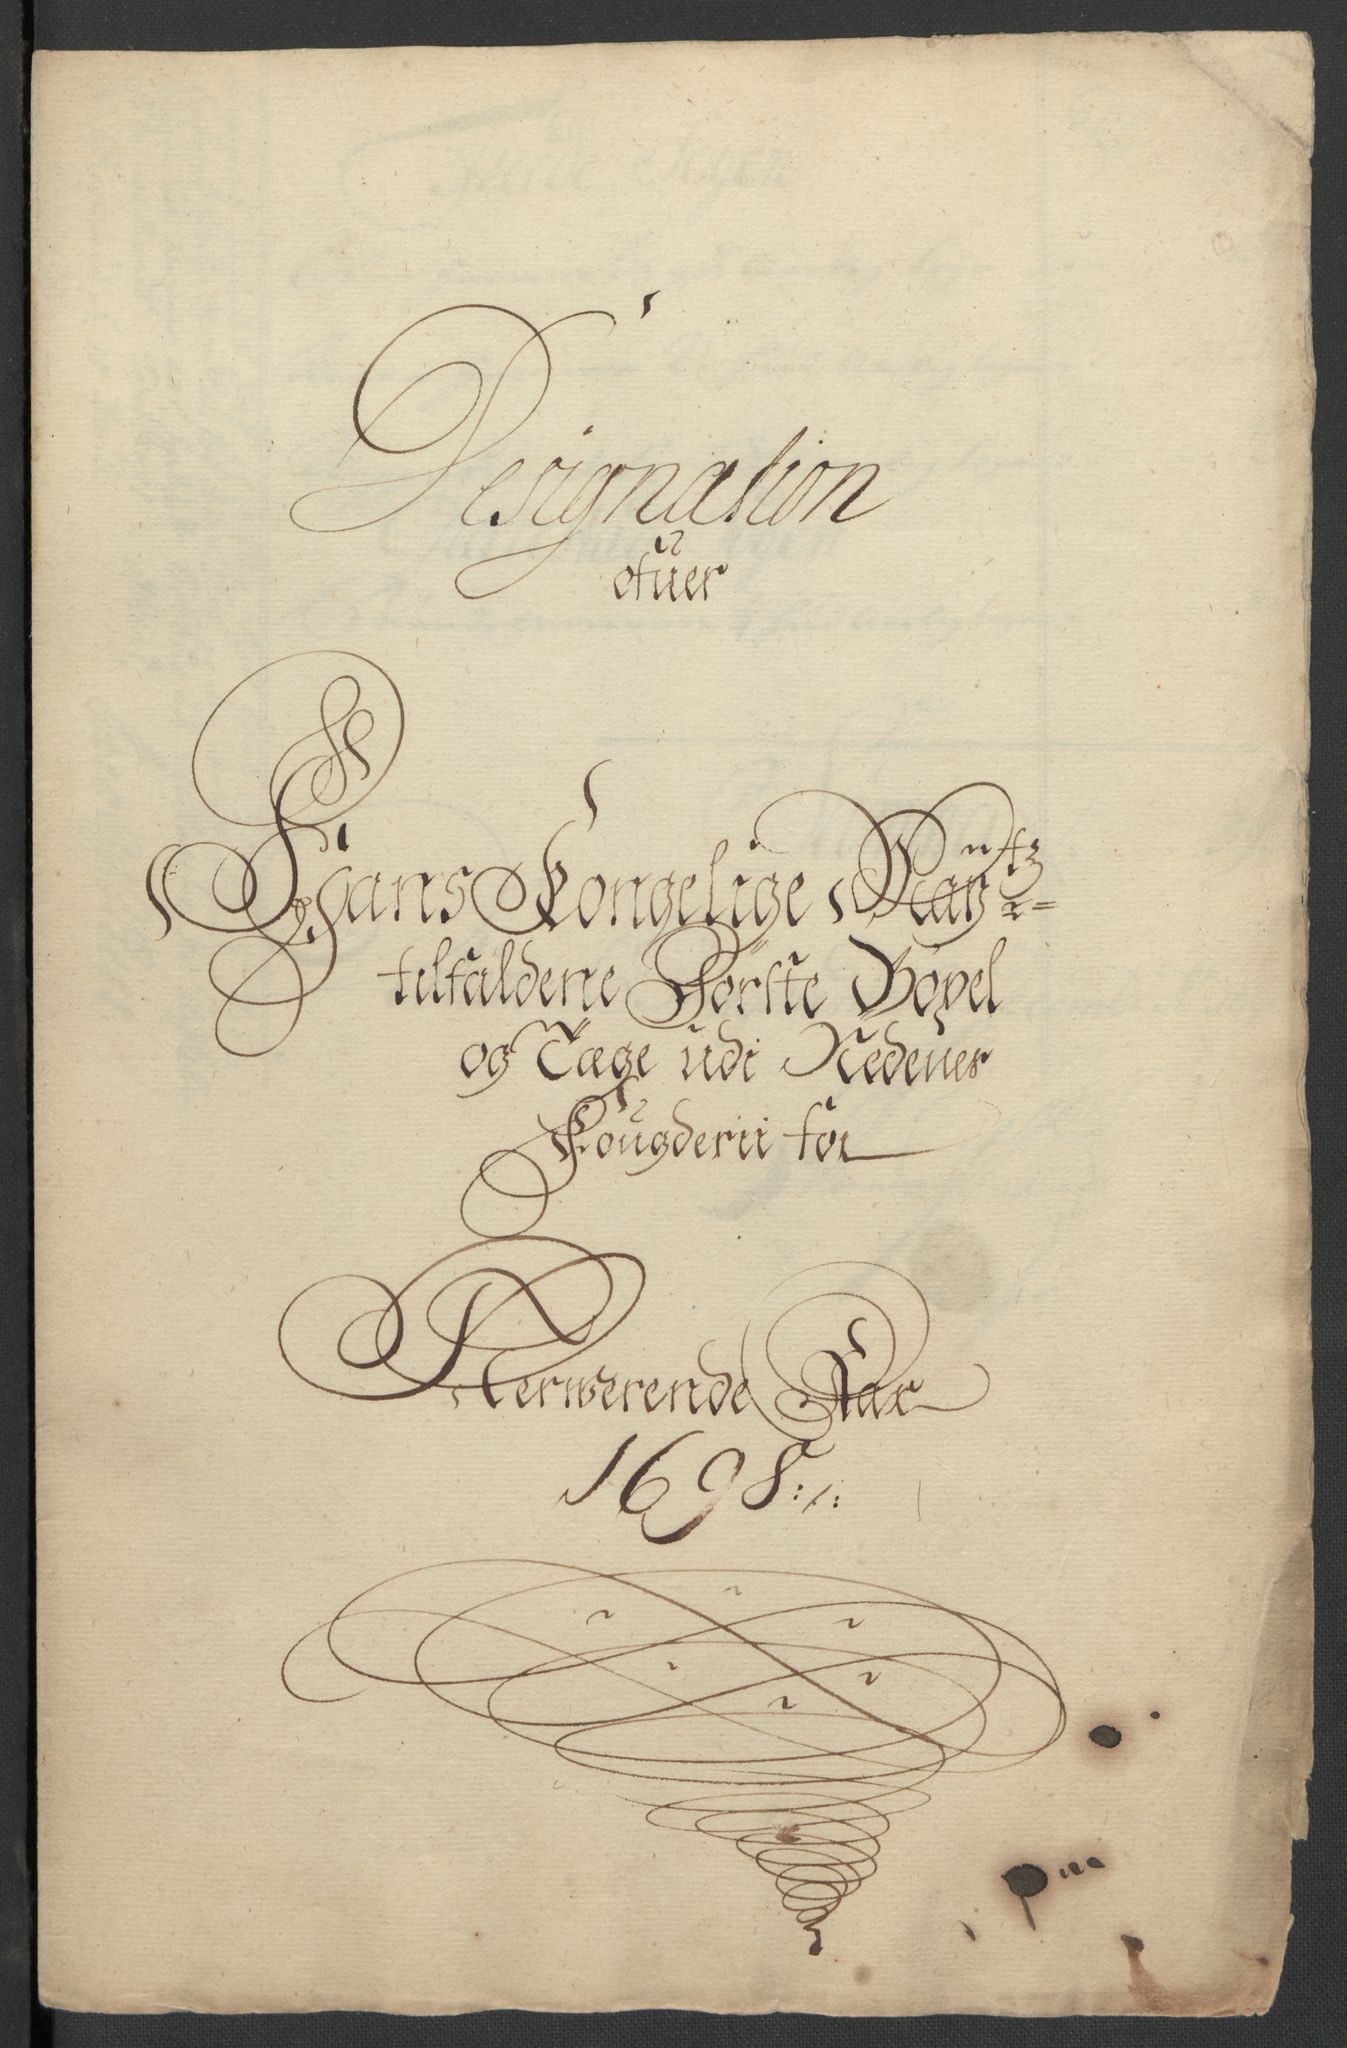 Designation
ofuer
Hans Kongelige Maÿtz
tilfaldene Förste Böxel
og Tæge udi Nedenes
Fougderii for
Nerwerende Aar
1698:/: